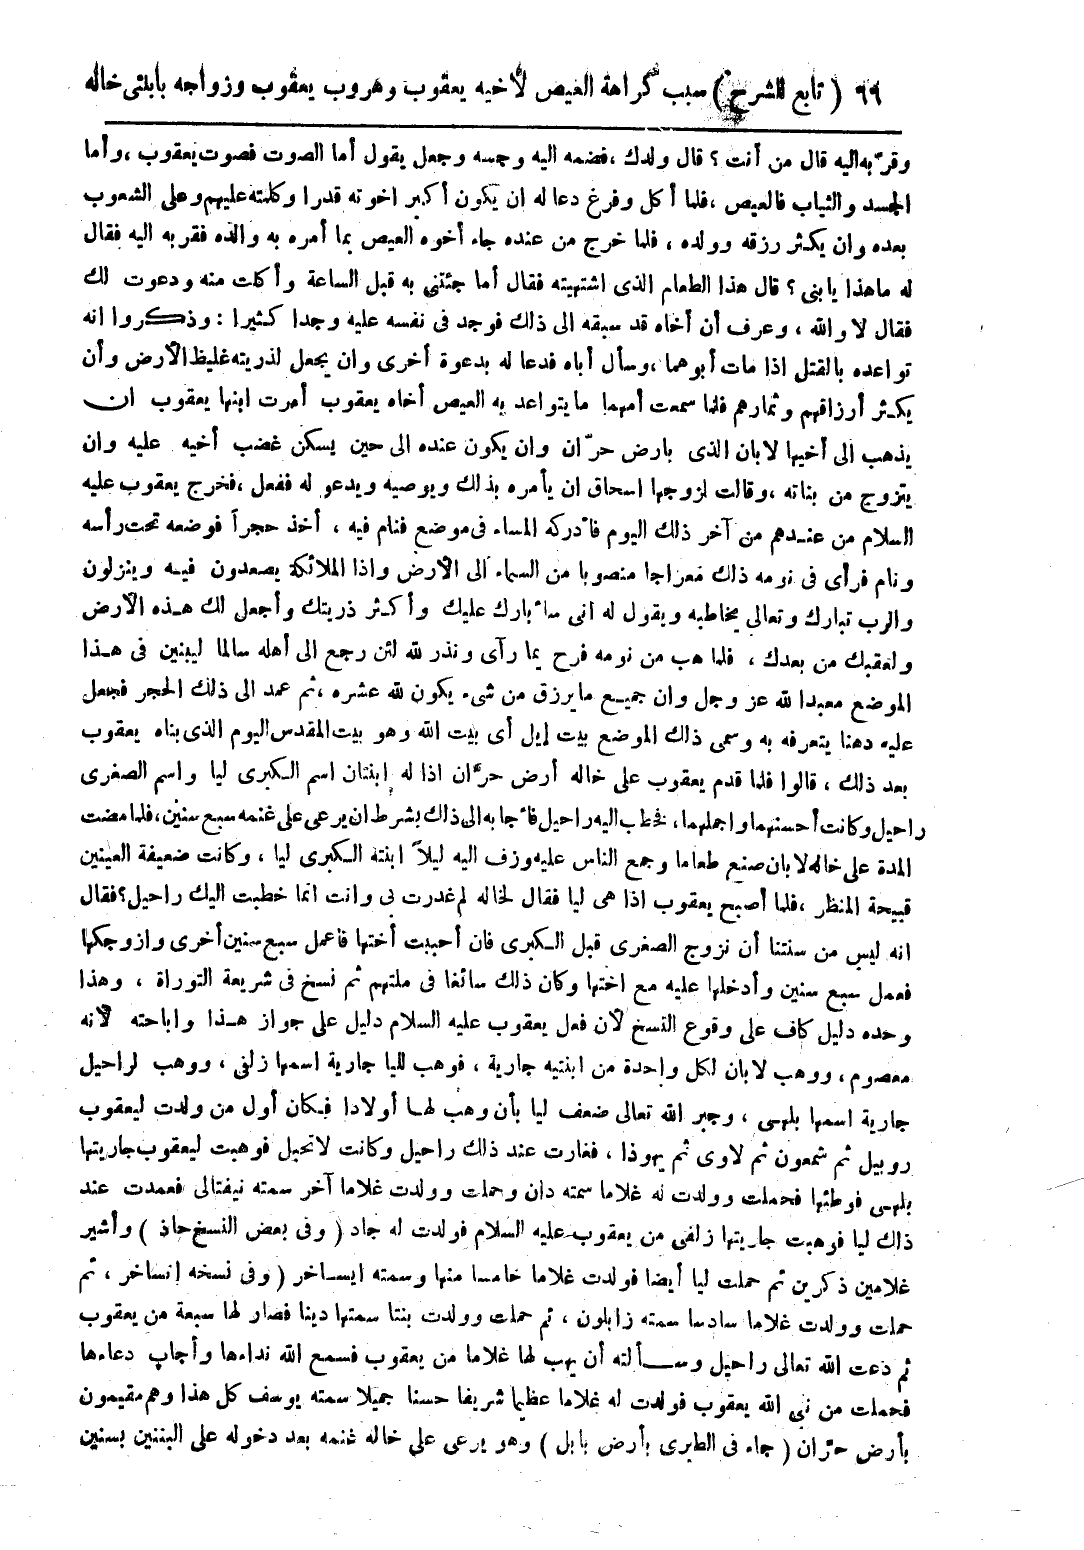 ٦٦ ( تابع للشرح ) سبب كراهة العيص لأخيه يعقوب وهروب يعقوب وزواجه بابنتى خاله
وقرّبه اليه قال من أنت ؟ قال ولدك ، فضمه اليه وجسه وجعل يقول أما الصوت فصوت يعقوب ، وأما
الجسد والثياب فالعيص ، فلما أكل وفرغ دعا له ان يكون أكبر اخوته قدرا وكلمته عليهم وعلى الشعوب
بعده وان يكثر رزقه وولده ، فلما خرج من عنده جاء أخوه العيص بما أمره به والده فقربه اليه فقال
له ماهذا يابنى ؟ قال هذا الطعام الذى اشتهيته فقال أما جئتنى به قبل الساعة وأكلت منه ودعوت لك
فقال لا والله ، وعرف أن أخاه قد سبقه الى ذلك فوجد فى نفسه عليه وجدا كثيرا : وذكروا انه
تواعده بالقتل اذا مات أبوهما ، وسأل أباه فدعا له بدعوة أخرى وان يجعل لذريته غليظ الأرض وأن
يكثر أرزاقهم وثمارهم فلما سمعت أمهما مايتواعد به العيص أخاه يعقوب أمرت ابنها يعقوب ان
يذهب الى أخيها لابان الذى بارض حرّان وان يكون عنده الى حين يسكن غضب أخيه عليه وان
يتزوج من بناته ، وقالت لزوجها اسحاق ان يأمره بذلك ويوصيه ويدعو له ففعل ، فخرج يعقوب عليه
السلام من عندهم من آخر ذلك اليوم فأدركه المساء فى موضع فنام فيه ، أخذ حجراً فوضعه تحت رأسه
ونام فرأى فى نومه ذلك معراجا منصوبا من السماء الى الأرض واذا الملائكة يصعدون فيه وينزلون
والرب تبارك وتعالى يخاطبه ويقول له انى سأبارك عليك وأكثر ذريتك وأجعل لك هذه الأرض
ولعقبك من بعدك ، فلما هب من نومه فرح بما رآى ونذر لله لئن رجع الى أهله سالما ليبنين فى هذا
الموضع معبدا لله عز وجل وان جميع مايرزق من شىء يكون لله عشره ، ثم عمد الى ذلك الحجر فجعل
عليه دهنا يتعرفه به وسمى ذلك الموضع بيت إيل أى بيت الله وهو بيت المقدس اليوم الذى بناه يعقوب
بعد ذلك ، قالوا فلما قدم يعقوب على خاله أرض حرّان اذا له إبنتان اسم الكبرى ليا واسم الصغرى
راحيل وكانت أحسنهما واجملهما ، فخطب اليه راحيل فأجابه الى ذلك بشرط ان يرعى على غنمه سبع سنين ، فلما مضت
المدة على خاله لابان صنع طعاما وجمع الناس عليه وزف اليه ليلاً ابنته الكبرى ليا ، وكانت ضعيفة العينين
قبيحة المنظر ، فلما أصبح يعقوب اذا هى ليا فقال لخاله لم غدرت بى وانت انما خطبت اليك راحيل ؟ فقال
انه ليس من سنتنا أن نزوج الصغرى قبل الكبرى فان أحببت أختها فاعمل سبع سنين أخرى وازوجكها
فعمل سبع سنين وأدخلها عليه مع اختها وكان ذلك سائغا فى ملتهم ثم نسخ فى شريعة التوراة ، وهذا
وحده دليل كاف على وقوع النسخ لأن فعل يعقوب عليه السلام دليل على جواز هذا واباحته لأنه
معصوم ، ووهب لابان لكل واحدة من ابنتيه جارية ، فوهب لليا جارية اسمها زلفى ، ووهب لراحيل
جارية اسمها بلهى ، وجبر الله تعالى ضعف ليا بأن وهب لها أولادا فكان أول من ولدت ليعقوب
روبيل ثم شمعون ثم لاوى ثم يهوذا ، فغارت عند ذلك راحيل وكانت لاتحبل فوهبت ليعقوب جاريتها
بلهى فوطئها فحملت وولدت له غلاما سمته دان وحملت وولدت غلاما آخر سمته نيفتالى فعمدت عند
ذلك ليا فوهبت جاريتها زلفى من يعقوب عليه السلام فولدت له جاد ( وفى بعض النسخ حاذ ) وأشير
غلامين ذكرين ثم حملت ليا أيضا فولدت غلاما خامسا منها وسمته ايساخر ( وفى نسخه إنساخر ، ثم
حملت وولدت غلاما سادسا سمته زابلون ، ثم حملت وولدت بنتا سمتها دينا فصار لها سبعة من يعقوب
ثم دعت الله تعالى راحيل وسألته أن يهب لها غلاما من يعقوب فسمع الله نداءها وأجاب دعاءها
فحملت من نبى الله يعقوب فولدت له غلاما عظيما شريفا حسنا جميلا سمته يوسف كل هذا وهم مقيمون
بأرض حرّان ( جاء فى الطبرى بأرض بابل ) وهو يرعى على خاله غنمه بعد دخوله على البنتين بسنين